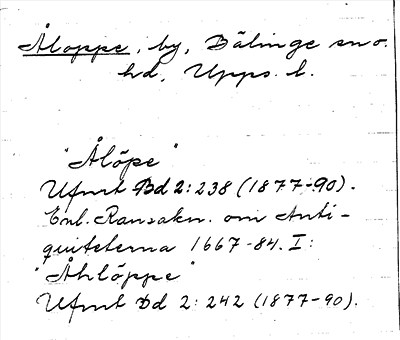 Åloppe, by, Bälinge sn o.
hd, Upps. l.
"Ålöpe"
Ufmt Bd 2:238 (1877-90).
Enl. Ransakn. om Anti-
quiteterna 1667-84. I:
"Åhlöppe"
Ufmt Bd 2: 242 (1877-90).